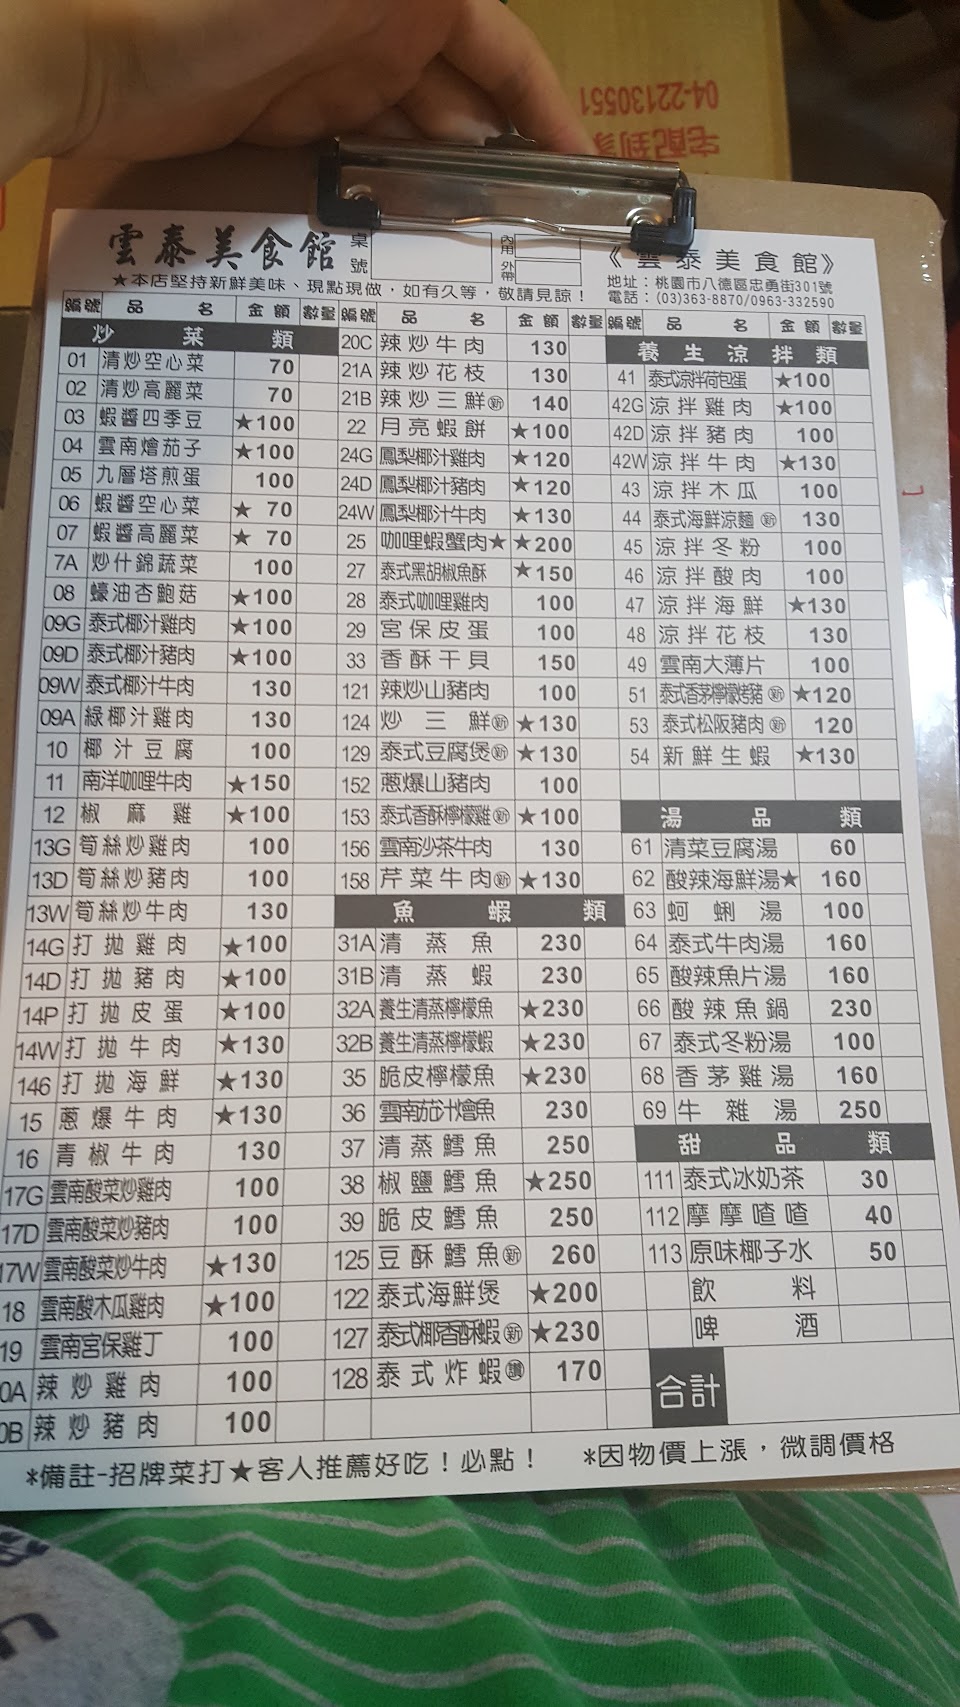 04-22130551
宅配到
雲泰美食館
桌號
內用
外帶
《雲泰美食館》
★本店堅持新鮮美味、現點現做,如有久等,敬請見諒!
地址:桃園市八德區忠勇街301號
電話:(03)363-8870/0963-332590
編號 品名 金額 數量
炒菜類
01 清炒空心菜 70
02 清炒高麗菜 70
03 蝦醬四季豆 ★100
04 雲南燴茄子 ★100
05 九層塔煎蛋 100
06 蝦醬空心菜 ★ 70
07 蝦醬高麗菜 ★ 70
7A 炒什錦蔬菜 100
08 蠔油杏鮑菇 ★100
09G 泰式椰汁雞肉 ★100
09D 泰式椰汁豬肉 ★100
09W 泰式椰汁牛肉 130
09A 綠椰汁雞肉 130
10 椰汁豆腐 100
11 南洋咖哩牛肉 ★150
12 椒麻雞 ★100
13G 筍絲炒雞肉 100
13D 筍絲炒豬肉 100
13W 筍絲炒牛肉 130
14G 打拋雞肉 ★100
14D 打拋豬肉 ★100
14P 打拋皮蛋 ★100
14W 打拋牛肉 ★130
146 打拋海鮮 ★130
15 蔥爆牛肉 ★130
16 青椒牛肉 130
17G 雲南酸菜炒雞肉 100
17D 雲南酸菜炒豬肉 100
17W 雲南酸菜炒牛肉 ★130
18 雲南酸木瓜雞肉 ★100
19 雲南宮保雞丁 100
0A 辣炒雞肉 100
0B 辣炒豬肉 100
編號 品名 金額 數量
20C 辣炒牛肉 130
21A 辣炒花枝 130
21B 辣炒三鮮新 140
22 月亮蝦餅 ★100
24G 鳳梨椰汁雞肉 ★120
24D 鳳梨椰汁豬肉 ★120
24W 鳳梨椰汁牛肉 ★130
25 咖哩蝦蟹肉★ ★200
27 泰式黑胡椒魚酥 ★150
28 泰式咖哩雞肉 100
29 宮保皮蛋 100
33 香酥干貝 150
121 辣炒山豬肉 100
124 炒三鮮新 ★130
129 泰式豆腐煲新 ★130
152 蔥爆山豬肉 100
153 泰式香酥檸檬雞新 ★100
156 雲南沙茶牛肉 130
158 芹菜牛肉新 ★130
魚蝦類
31A 清蒸魚 230
31B 清蒸蝦 230
32A 養生清蒸檸檬魚 ★230
32B 養生清蒸檸檬蝦 ★230
35 脆皮檸檬魚 ★230
36 雲南茄汁燴魚 230
37 清蒸鱈魚 250
38 椒鹽鱈魚 ★250
39 脆皮鱈魚 250
125 豆酥鱈魚新 260
122 泰式海鮮煲 ★200
127 泰式椰香酥蝦新 ★230
128 泰式炸蝦讚 170
編號 品名 金額 數量
養生涼拌類
41 泰式涼拌荷包蛋 ★100
42G 涼拌雞肉 ★100
42D 涼拌豬肉 100
42W 涼拌牛肉 ★130
43 涼拌木瓜 100
44 泰式海鮮涼麵新 130
45 涼拌冬粉 100
46 涼拌酸肉 100
47 涼拌海鮮 ★130
48 涼拌花枝 130
49 雲南大薄片 100
51 泰式香茅檸檬烤豬新 ★120
53 泰式松阪豬肉新 120
54 新鮮生蝦 ★130
湯品類
61 清菜豆腐湯 60
62 酸辣海鮮湯★ 160
63 蚵蜊湯 100
64 泰式牛肉湯 160
65 酸辣魚片湯 160
66 酸辣魚鍋 230
67 泰式冬粉湯 100
68 香茅雞湯 160
69 牛雜湯 250
甜品類
111 泰式冰奶茶 30
112 摩摩喳喳 40
113 原味椰子水 50
飲料
啤酒
合計
*備註-招牌菜打★客人推薦好吃!必點! *因物價上漲,微調價格